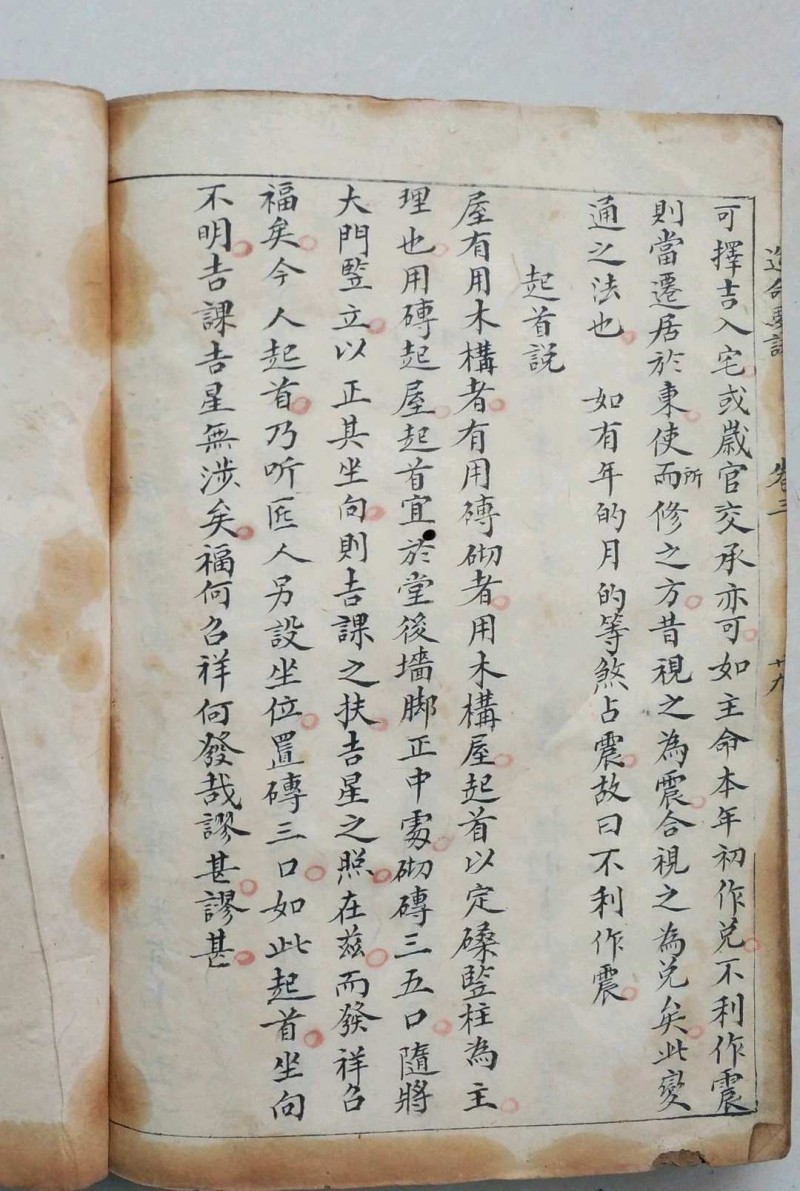 可擇吉入宅或歲官交承亦可如主命本年初作兑不利作震
則當遷居於東使而所修之方昔視之為震合視之為兑矣此變
通之法也 如有年的月的等煞占震故曰不利作震
起首説
屋有用木構者有用磚砌者用木構屋起首以定磉竪柱為主
理也用磚起屋起首宜於堂後墻脚正中處砌磚三五口隨將
大門竪立以正其坐向則吉課之扶吉星之照在兹而發祥召
福矣今人起首乃听匠人另設坐位置磚三口如此起首坐向
不明吉課吉星無涉矣福何召祥何發哉謬甚謬甚
卷三
十九